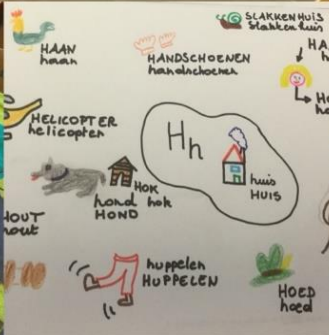 SLAKKENHUIS
slakkenhuis
HAAN
haan
HANDSCHOENEN
handschoenen
HA
HELICOPTER
helicopter
Hh
huis
HUIS
HOK
hok
hond
HOND
HOUT
hout
huppelen
HUPPELEN
HOED
hoed